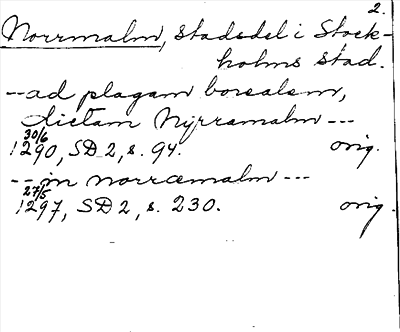 2.
Norrmalm, stadsdel i Stock-
holms stad.
--ad plagam borealem,
dictam Nyrramalm ---
30/6
1290, SD 2, s. 94. orig.
--in norræmalm ---
27/5
1297, SD 2, s. 230. orig.